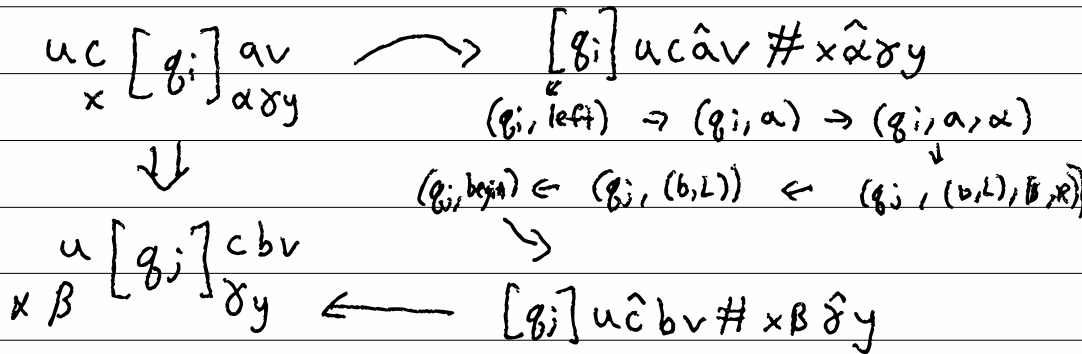 u c [q_i] a v → [q_i] u c â v # x α̂ γ y
x α γ y
(q_i, left) → (q_i, a) → (q_i, a, α)
⇓ ↓
(q_j, begin) ← (q_j, (b,L)) ← (q_j, (b,L), β, R))
u [q_j] c b v
x β γ y ← [q_j] u ĉ b v # x β γ̂ y